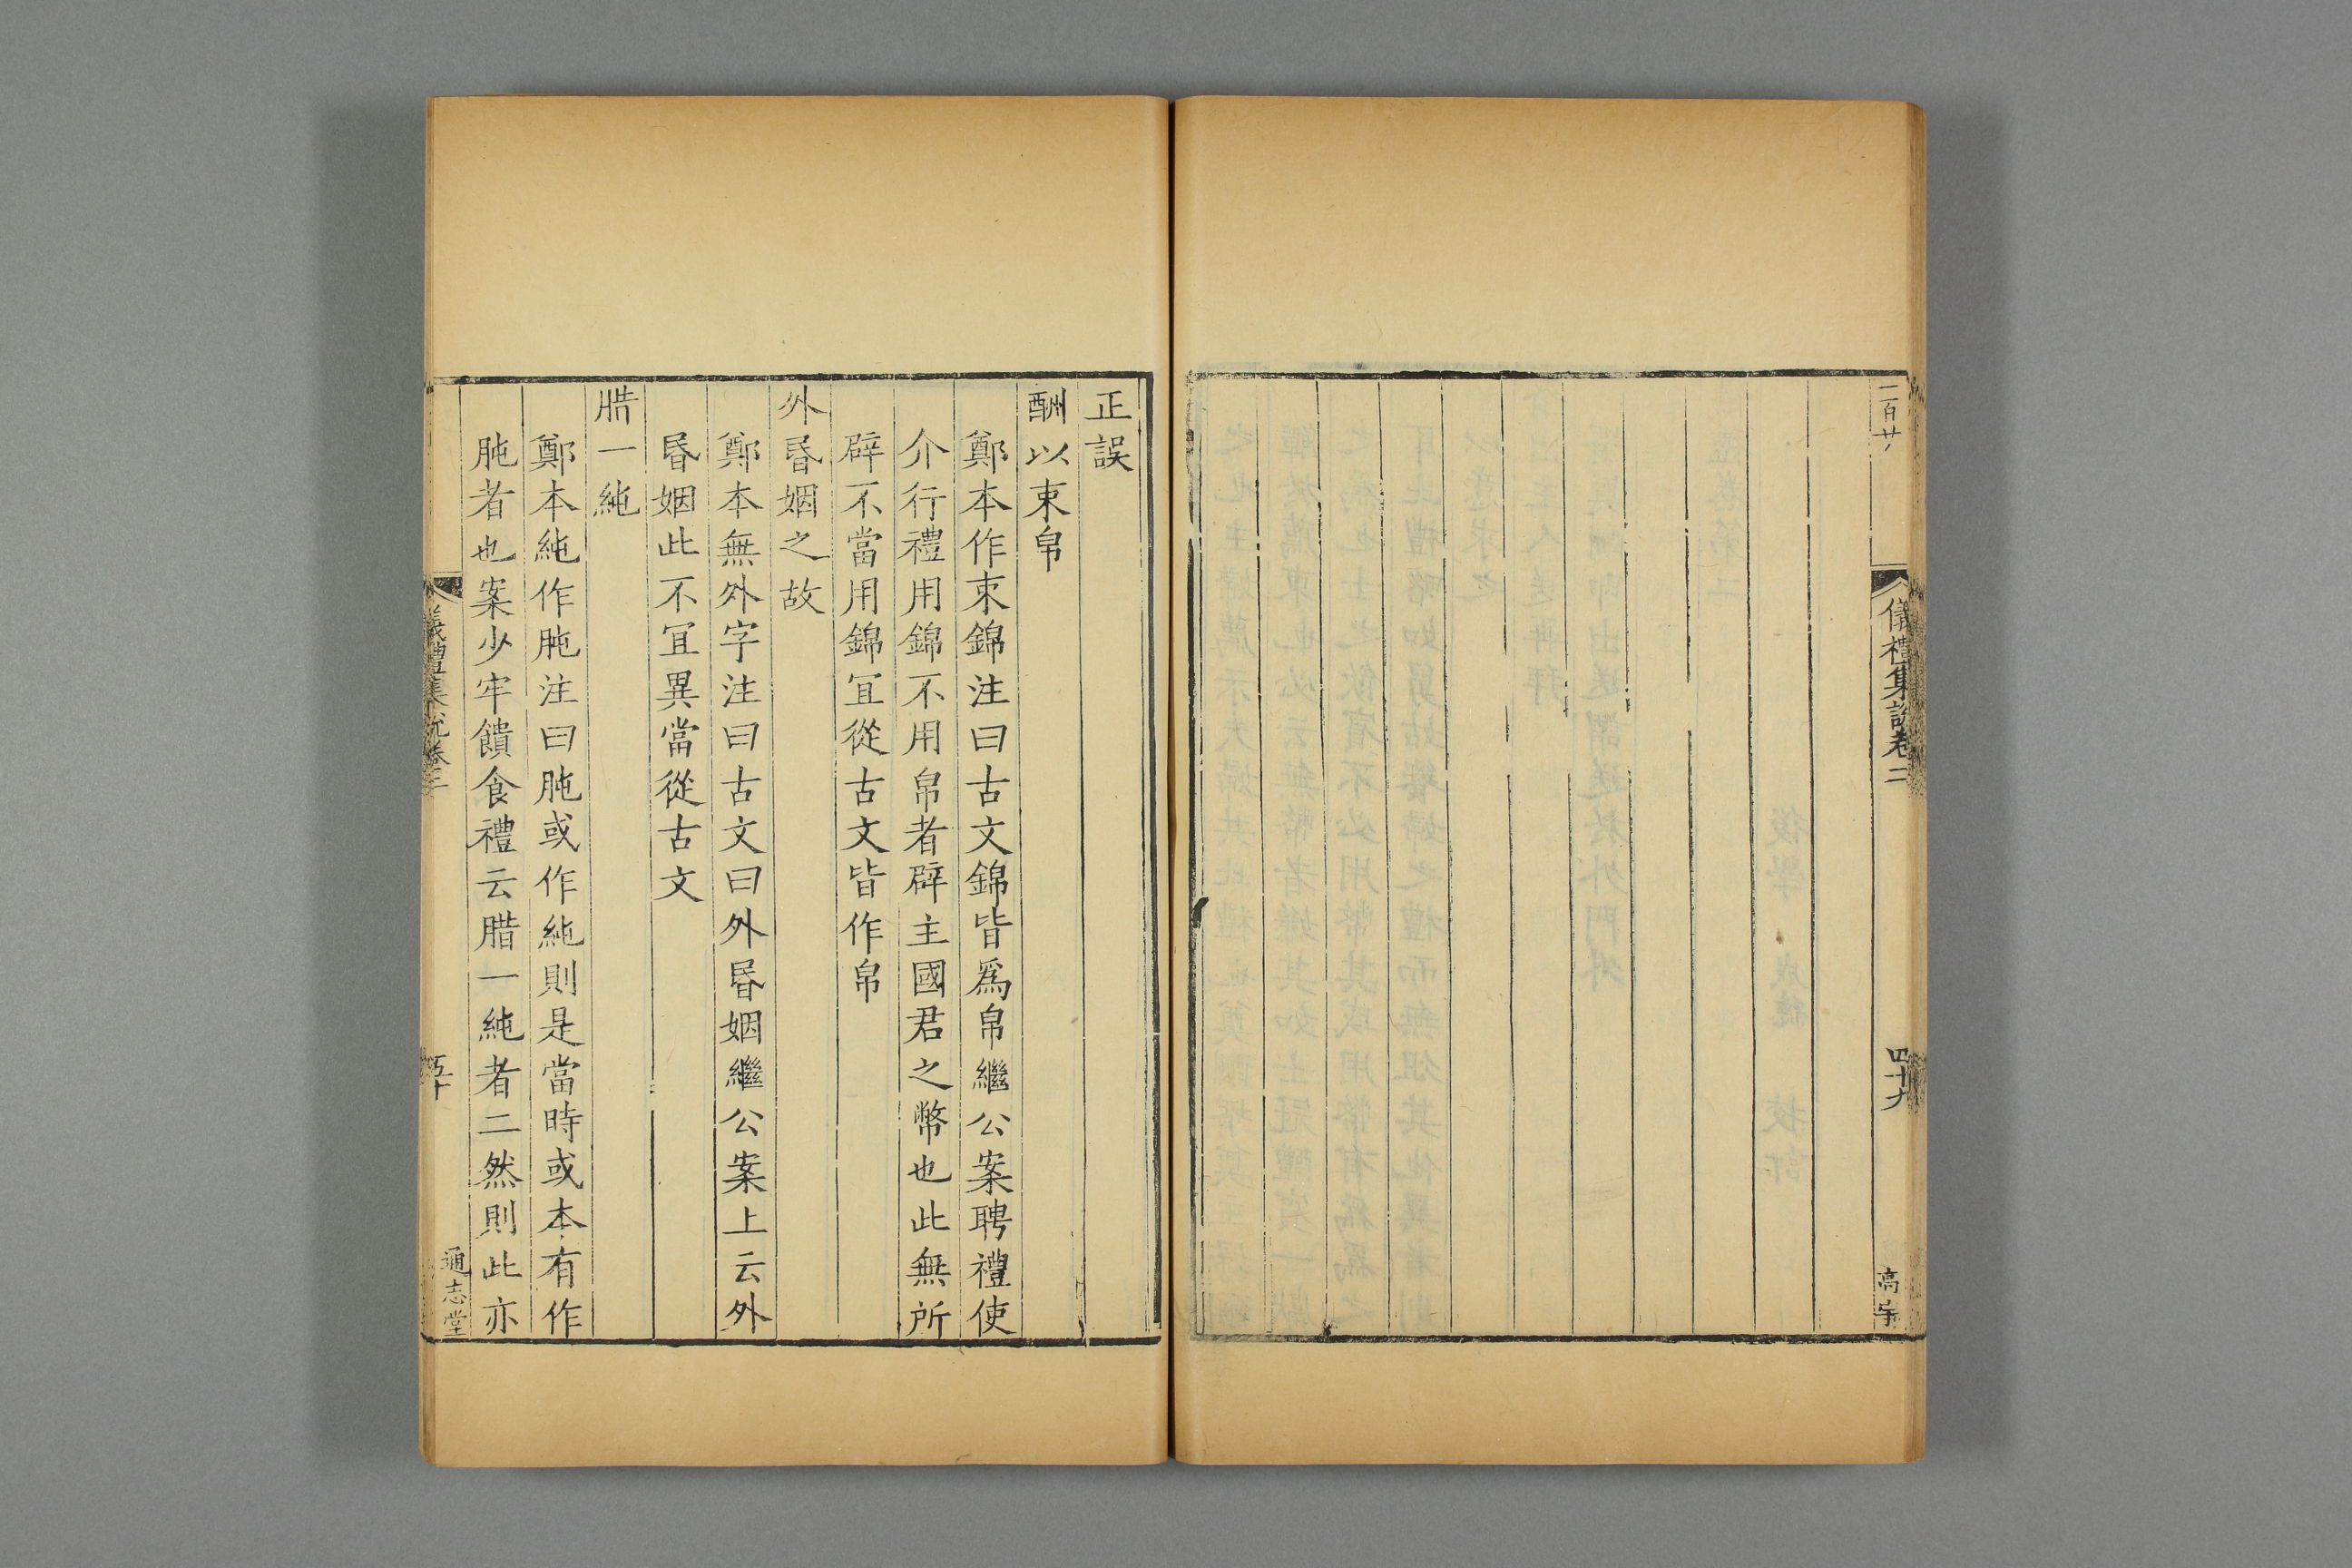 二百廿
儀禮集說卷二
四十九
正誤
酬以束帛
鄭本作束錦注曰古文錦皆爲帛繼公案聘禮使
介行禮用錦不用帛者辟主國君之幣也此無所
辟不當用錦冝從古文皆作帛
外昬姻之故
鄭本無外字注曰古文曰外昬姻繼公案上云外
昬姻此不冝異當從古文
腊一純
鄭本純作肫注曰肫或作純則是當時或本有作
肫者也案少牢饋食禮云腊一純者二然則此亦
儀禮集說卷二
五十
通志堂